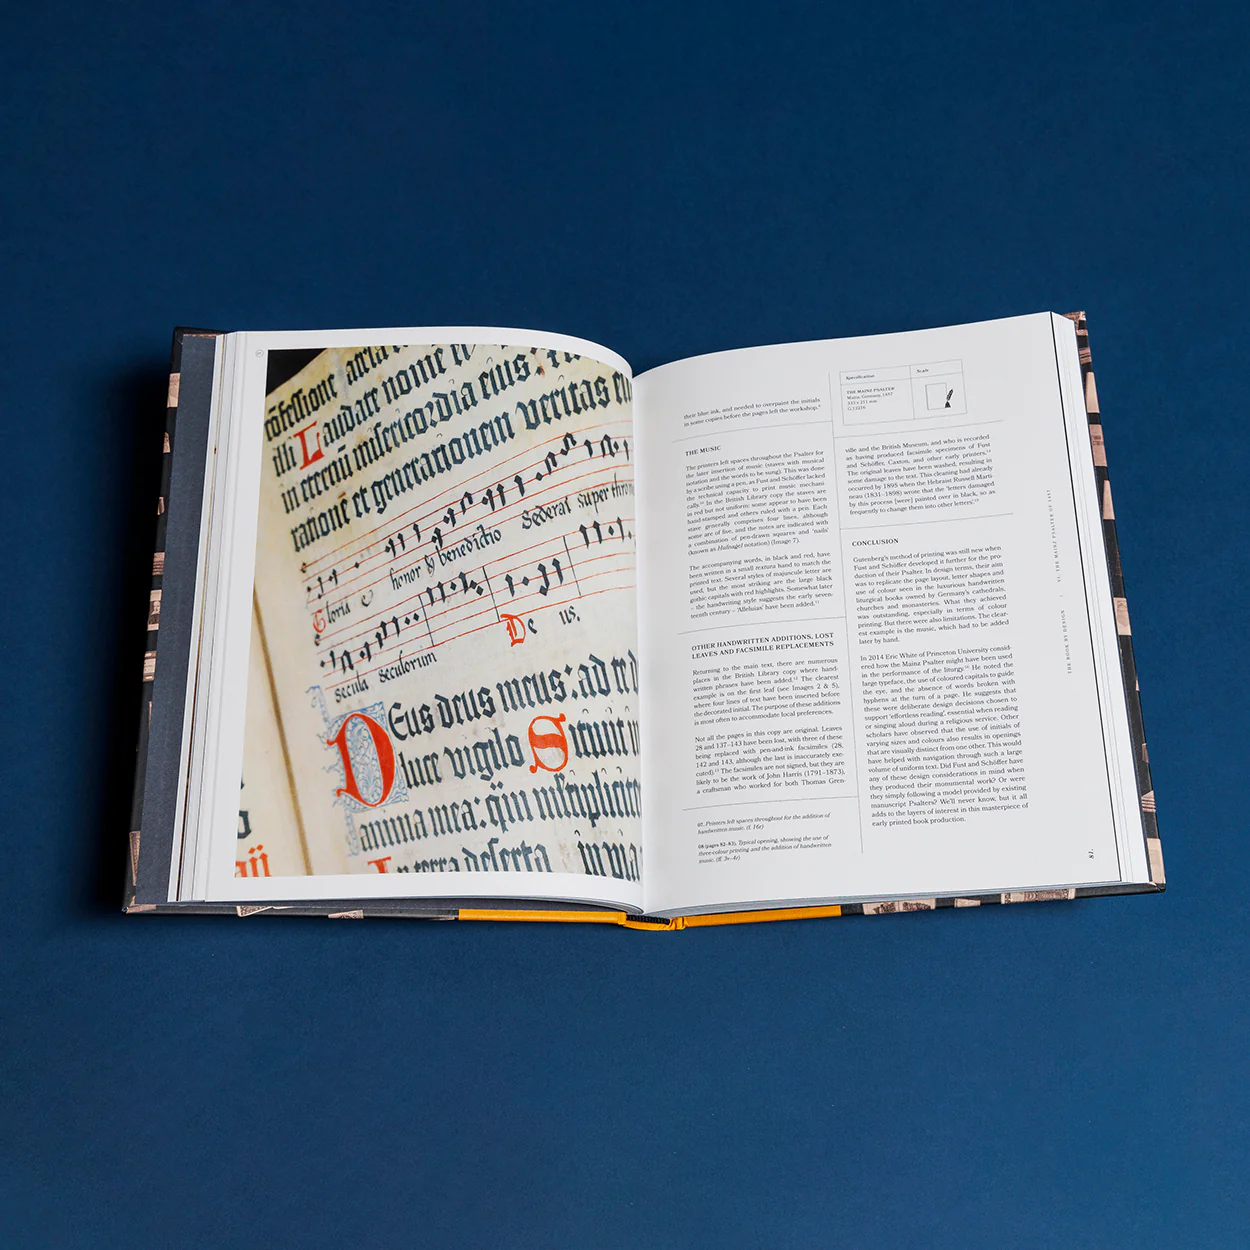 07
confessione
Laudate nomen
in eternū misericordia eius:
ratione et generationem veritas eius
Sederat super thro
honor & benedictio
Gloria
De us.
secula seculorum
Deus deus meus: ad te d
luce vigilo Sitiuit in
anima mea: q̄m m̄ltiplicite
In terra deserta, in via
their blue ink, and needed to overpaint the initials
in some copies before the pages left the workshop.⁹
THE MUSIC
The printers left spaces throughout the Psalter for
the later insertion of music (staves with musical
notation and the words to be sung). This was done
by a scribe using a pen, as Fust and Schöffer lacked
the technical capacity to print music mechani-
cally.¹⁰ In the British Library copy the staves are
in red but not uniform: some appear to have been
hand-stamped and others ruled with a pen. Each
stave generally comprises four lines, although
some are of five, and the notes are indicated with
a combination of pen-drawn squares and 'nails'
(known as Hufnagel notation) (Image 7).
The accompanying words, in black and red, have
been written in a small textura hand to match the
printed text. Several styles of majuscule letter are
used, but the most striking are the large black
gothic capitals with red highlights. Somewhat later
– the handwriting style suggests the early seven-
teenth century – 'Alleluias' have been added.¹¹
OTHER HANDWRITTEN ADDITIONS, LOST
LEAVES AND FACSIMILE REPLACEMENTS
Returning to the main text, there are numerous
places in the British Library copy where hand-
written phrases have been added.¹² The clearest
example is on the first leaf (see Images 2 & 5),
where four lines of text have been inserted before
the decorated initial. The purpose of these additions
is most often to accommodate local preferences.
Not all the pages in this copy are original. Leaves
28 and 137–143 have been lost, with three of these
being replaced with pen-and-ink facsimiles (28,
142 and 143, although the last is inaccurately exe-
cuted).¹³ The facsimiles are not signed, but they are
likely to be the work of John Harris (1791–1873),
a craftsman who worked for both Thomas Gren-
07. Printers left spaces throughout for the addition of
handwritten music. (f. 16r)
08 (pages 82–83). Typical opening, showing the use of
three-colour printing and the addition of handwritten
music. (ff. 3v–4r)
Specification
Scale
THE MAINZ PSALTER
Mainz, Germany, 1457
G.12216
ville and the British Museum, and who is recorded
as having produced facsimile specimens of Fust
and Schöffer, Caxton, and other early printers.¹⁴
The original leaves have been washed, resulting in
some damage to the text. This cleaning had already
occurred by 1895 when the Hebraist Russell Marti-
neau (1831–1898) wrote that the 'letters damaged
by this process [were] painted over in black, so as
frequently to change them into other letters'.¹⁵
CONCLUSION
Gutenberg's method of printing was still new when
Fust and Schöffer developed it further for the pro-
duction of their Psalter. In design terms, their aim
was to replicate the page layout, letter shapes and
use of colour seen in the luxurious handwritten
liturgical books owned by Germany's cathedrals,
churches and monasteries. What they achieved
was outstanding, especially in terms of colour
printing. But there were also limitations. The clear-
est example is the music, which had to be added
later by hand.
In 2014 Eric White of Princeton University consid-
ered how the Mainz Psalter might have been used
in the performance of the liturgy.¹⁶ He noted the
large typeface, the use of coloured capitals to guide
the eye, and the absence of words broken with
hyphens at the turn of a page. He suggests that
these were deliberate design decisions chosen to
support 'effortless reading', essential when reading
or singing aloud during a religious service. Other
scholars have observed that the use of initials of
varying sizes and colours also results in openings
that are visually distinct from one other. This would
have helped with navigation through such a large
volume of uniform text. Did Fust and Schöffer have
any of these design considerations in mind when
they produced their monumental work? Or were
they simply following a model provided by existing
manuscript Psalters? We'll never know, but it all
adds to the layers of interest in this masterpiece of
early printed book production.
THE BOOK BY DESIGN | VI: THE MAINZ PSALTER OF 1457
81.